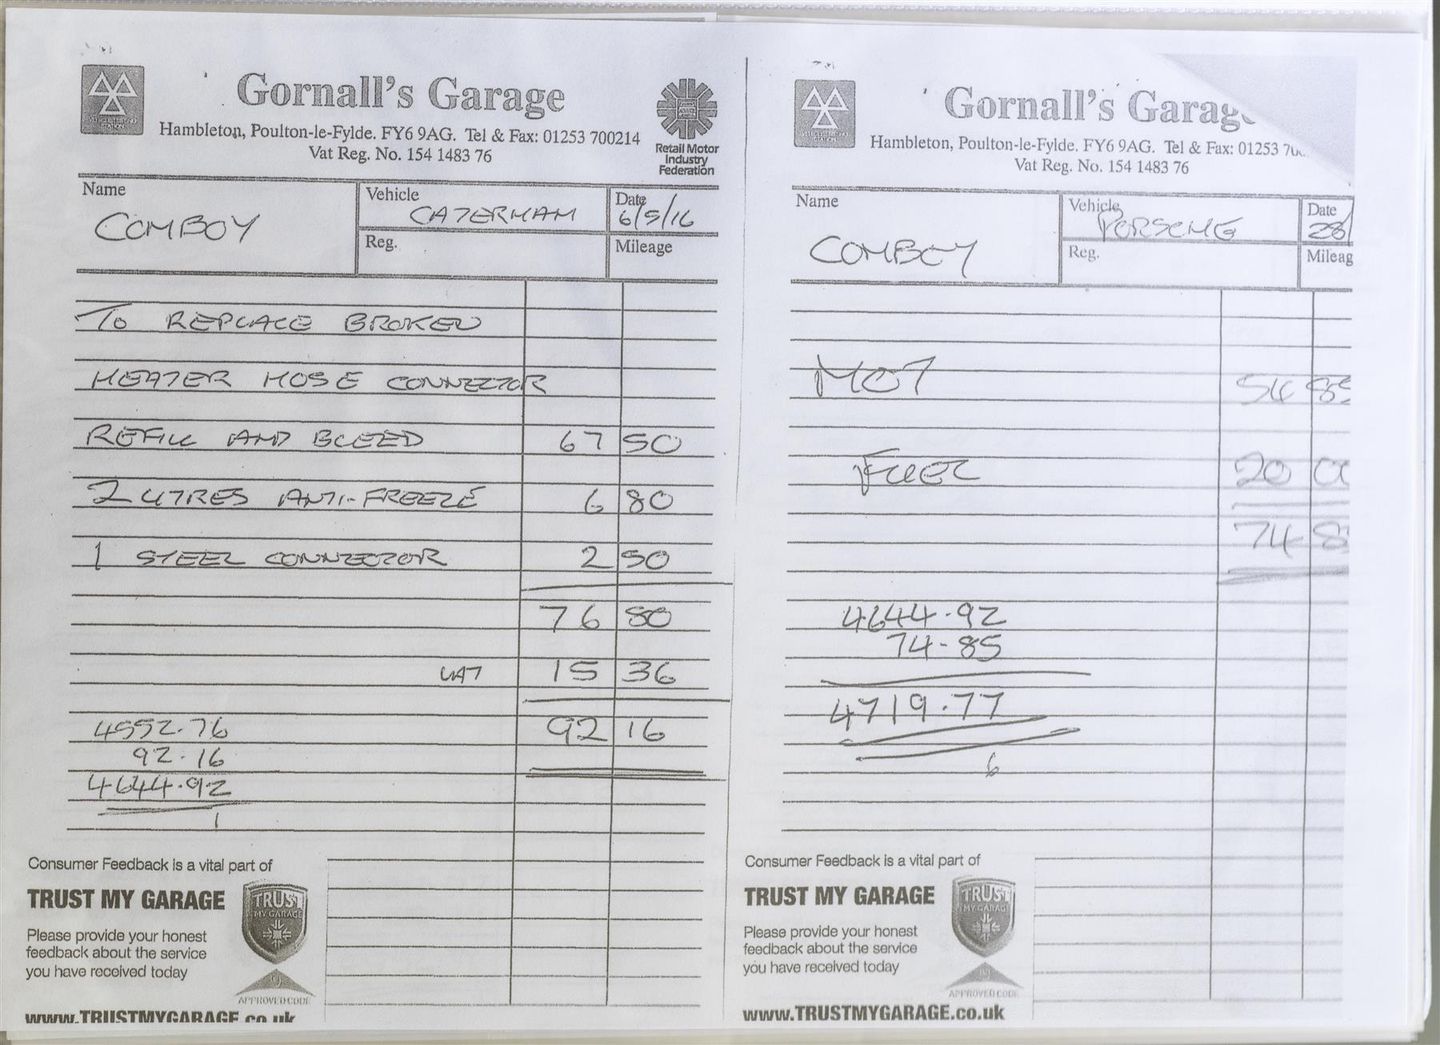 Gornall's Garage
Hambleton, Poulton-le-Fylde. FY6 9AG. Tel & Fax: 01253 700214
Vat Reg. No. 154 1483 76
Retail Motor
Industry
Federation
Name
COMBOY
Vehicle
CATERHAM
Date
6/5/16
Reg.
Mileage
TO REPLACE BROKEN
HEATER HOSE CONNECTOR
REFILL AND BLEED 67 50
2 LITRES ANTI-FREEZE 6 80
1 STEEL CONNECTOR 2 50
76 80
VAT 15 36
4552.76 92 16
92.16
4644.92
1
Consumer Feedback is a vital part of
TRUST MY GARAGE
Please provide your honest
feedback about the service
you have received today
TRUST
MY GARAGE
APPROVED CODE
www.TRUSTMYGARAGE.co.uk
Gornall's Garage
Hambleton, Poulton-le-Fylde. FY6 9AG. Tel & Fax: 01253 70
Vat Reg. No. 154 1483 76
Name
COMBOY
Vehicle
PORSCHE
Date
28/
Reg.
Mileag
MOT 54 85
FUEL 20 00
74 8
4644.92
74-85
4719.77
6
Consumer Feedback is a vital part of
TRUST MY GARAGE
Please provide your honest
feedback about the service
you have received today
TRUST
MY GARAGE
APPROVED CODE
www.TRUSTMYGARAGE.co.uk